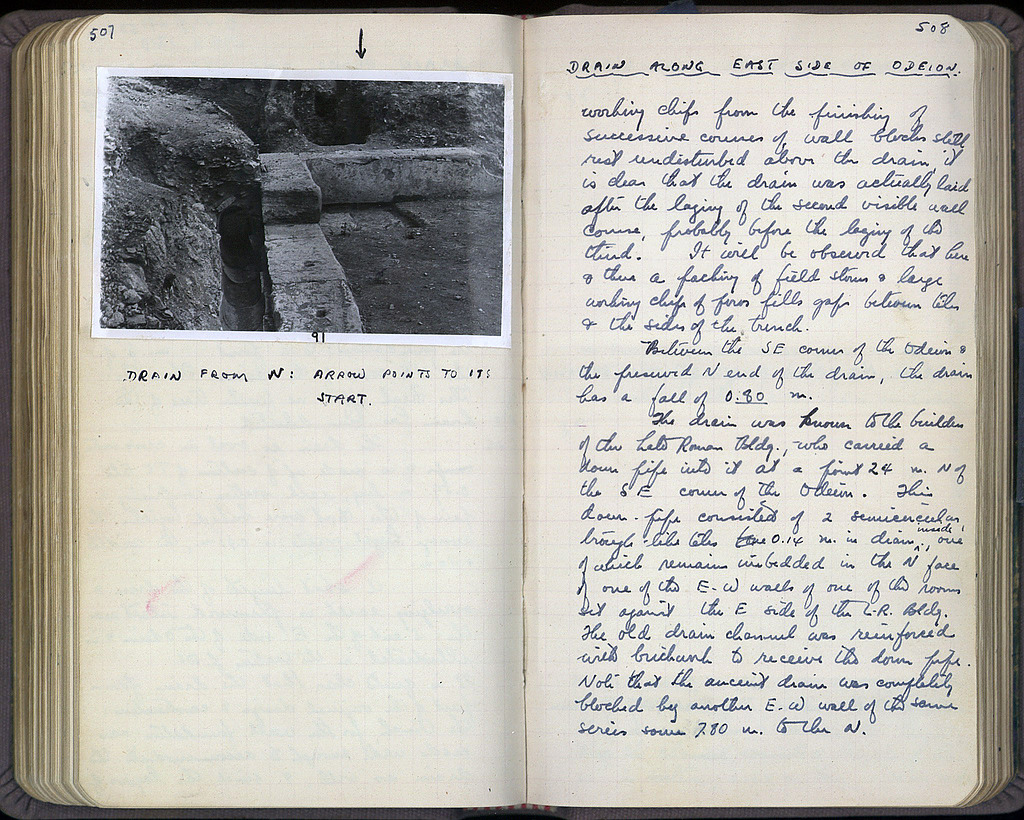 507
↓
91
DRAIN FROM N: ARROW POINTS TO ITS
START.
508
DRAIN ALONG EAST SIDE OF ODEION.
working chips from the finishing of
successive courses of wall blocks still
rest undisturbed above the drain, it
is clear that the drain was actually laid
after the laying of the second visible wall
course, probably before the laying of the
third. It will be observed that here
& thus a packing of field stones & large
working chips of poros fills gaps between tiles
& the sides of the trench.
Between the SE corner of the Odeion &
the preserved N end of the drain, the drain
has a fall of 0.80 m.
The drain was known to the builders
of the Late Roman Bldg., who carried a
down pipe into it at a point 24 m. N of
the SE corner of the Odeion. This
down-pipe consisted of 2 semicircular
trough-like tiles 0.14 m. in diam. inside, one
of which remains imbedded in the N face
of one of the E-W walls of one of the rooms
set against the E side of the L.R. Bldg.
The old drain channel was reinforced
with brickwork to receive the down pipe.
Note that the ancient drain was completely
blocked by another E-W wall of the same
series some 7.80 m. to the N.